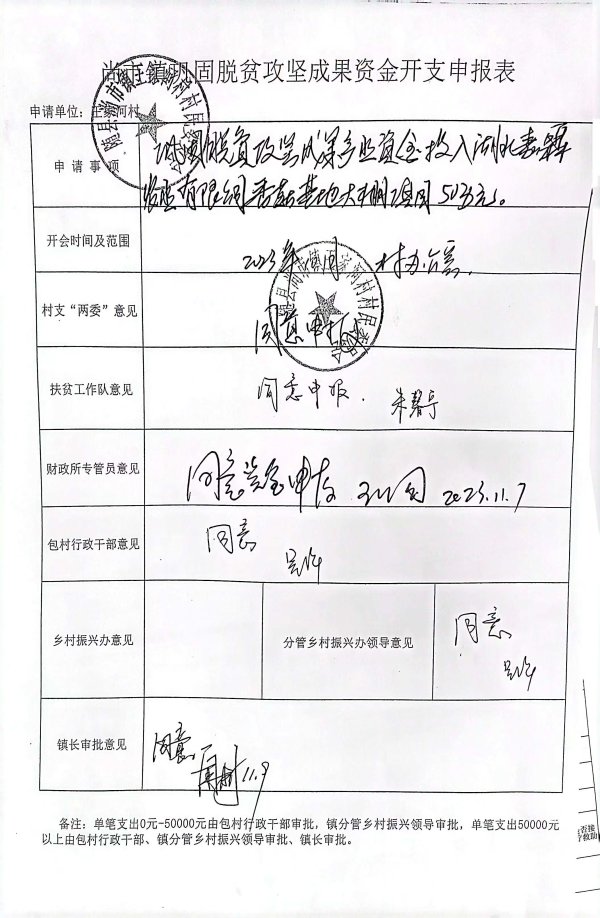 尚市镇巩固脱贫攻坚成果资金开支申报表
申请单位：王家河村
申请事项
巩固脱贫攻坚成果产业资金投入湖北
有限公司香菇基地大棚项目50万元。
开会时间及范围
2023年 村办公室
村支“两委”意见
同意申报
扶贫工作队意见
同意申报.
财政所专管员意见
同意资金申报 2023.11.7
包村行政干部意见
同意
乡村振兴办意见
分管乡村振兴办领导意见
同意
镇长审批意见
同意
11.9
备注：单笔支出0元-50000元由包村行政干部审批，镇分管乡村振兴领导审批，单笔支出50000元
以上由包村行政干部、镇分管乡村振兴领导审批、镇长审批。
随县尚市镇王家河村村民委员会
随县尚市镇王家河村村民委员会